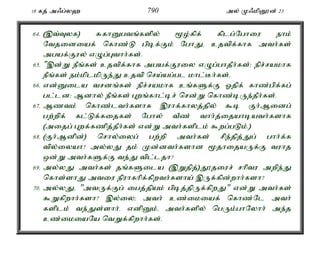 18 கத் அஃப்லஹ 790 அல் முஃமினூன் 23
64. (இவ்வுலக) சுகானுபவங்களில் மூழ்கிக் கிடப்போரை நாம்
வேதனையைக் கொண்டு பிடிக்கும் போது, உதவிக்காக அவர்கள்
அபயக்குரல் எழுப்புவார்கள்.
65. "இன்று நீங்கள் உதவிக்காக அபயக்குரலை எழுப்பாதீர்கள்; நிச்சயமாக
நீங்கள் நம்மிடமிருந்து உதவி செய்யப்பட மாட்டீர்கள்.
66. என்னுடைய வசனங்கள் நிச்சயமாக உங்களுக்கு ஓதிக் காண்பிக்கப்
பட்டன. ஆனால் நீங்கள் புறங்காட்டிச் சென்று கொண்டிருந்தீர்கள்.
67. ஆணவம் கொண்டவர்களாக இராக்காலத்தில் கூடி குர்ஆனைப்
பற்றிக் கட்டுக்கதைகள் போல் வீண் வார்த்தையாடியவர்களாக
(அதைப் புறக்கணித்தீர்கள் என்று அவர்களிடம் கூறப்படும்.)
68. (குர்ஆனின்) சொல்லைப் பற்றி அவர்கள் சிந்தித்துப் பார்க்க
வில்லையா? அல்லது தம் முன்னவர்களான மூதாதையருக்கு வராத
ஒன்று அவர்களுக்கு வந்து விட்டதா?
69. அல்லது அவர்கள் தங்களுடைய (இறுதித்)தூதரைச் சரிவர அறிந்து
கொள்ளாது அவரை நிராகரிக்கிறவர்களாய் இருக்கின்றார்களா?
70. அல்லது, "அவருக்குப் பைத்தியம் பிடித்திருக்கிறது" என்று அவர்கள்
கூறுகிறார்களா? இல்லை; அவர் உண்மையைக் கொண்டே அவர்
களிடம் வந்துள்ளார். எனினும், அவர்களில் பெரும்பாலோர் அந்த
உண்மையையே வெறுக்கிறார்கள்.